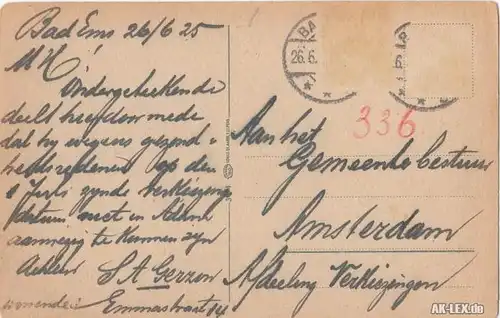 Bad Ems 26/6 25
M H
Ondergeteekende
deelt hierdoor mede
dat hy wegens gezond-
heidsredenen op den
1 Juli zynde verkiezings
datum niet in
aanwezig te kunnen zyn
Achtend
S A Gerzon
wonende:
Emmastraat
BA
26.6.
336
Aan het
Gemeentebestuur
Amsterdam
Afdeeling Verkiezingen
AK-LEX.de